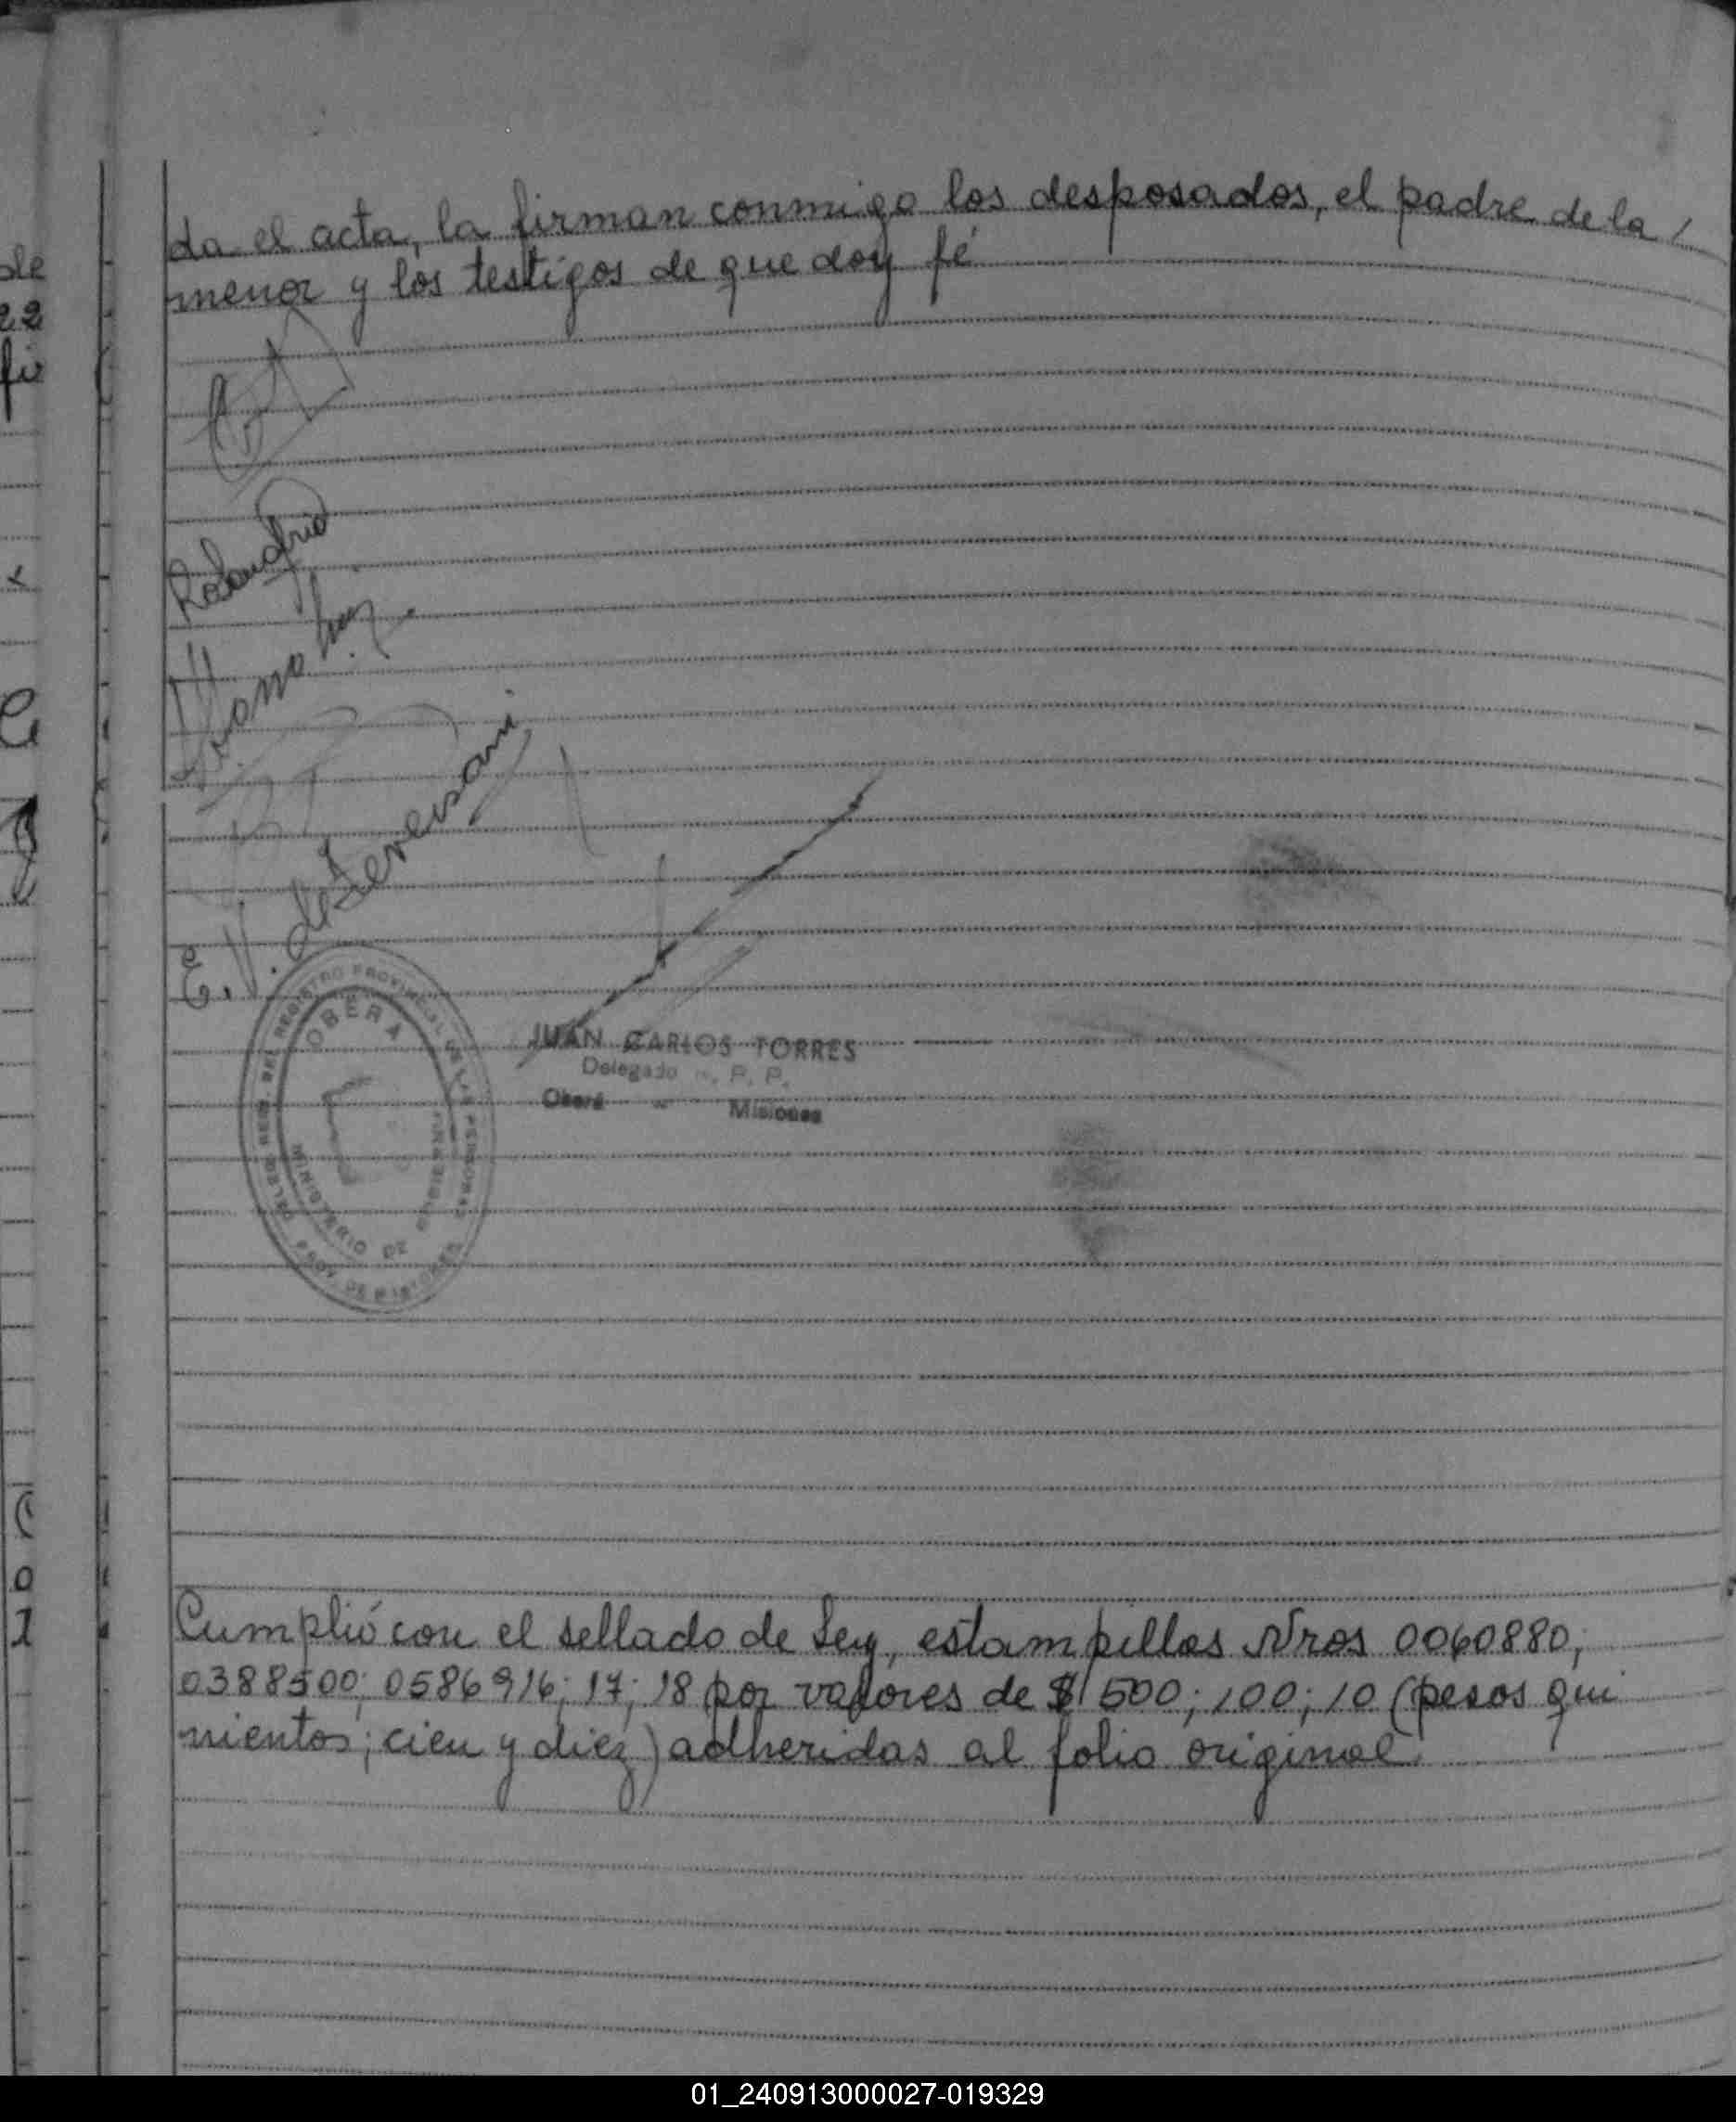 da el acta, la firman conmigo los desposados, el padre de la /
menor y los testigos de que doy fé
E. V. de
OBERA
REGISTRO PROVINCIAL DE LAS PERSONAS
MINISTERIO DE
PROV. DE MISIONES
JUAN CARLOS TORRES
Delegado R. P. P.
Oberá - Misiones
Cumplió con el sellado de Ley, estampillas Nros 0060880;
0388500; 0586916; 17; 18 por valores de $ 500; 100; 10 (pesos qui
nientos; cien y diez) adheridas al folio original.
de
22
fi
01_240913000027-019329